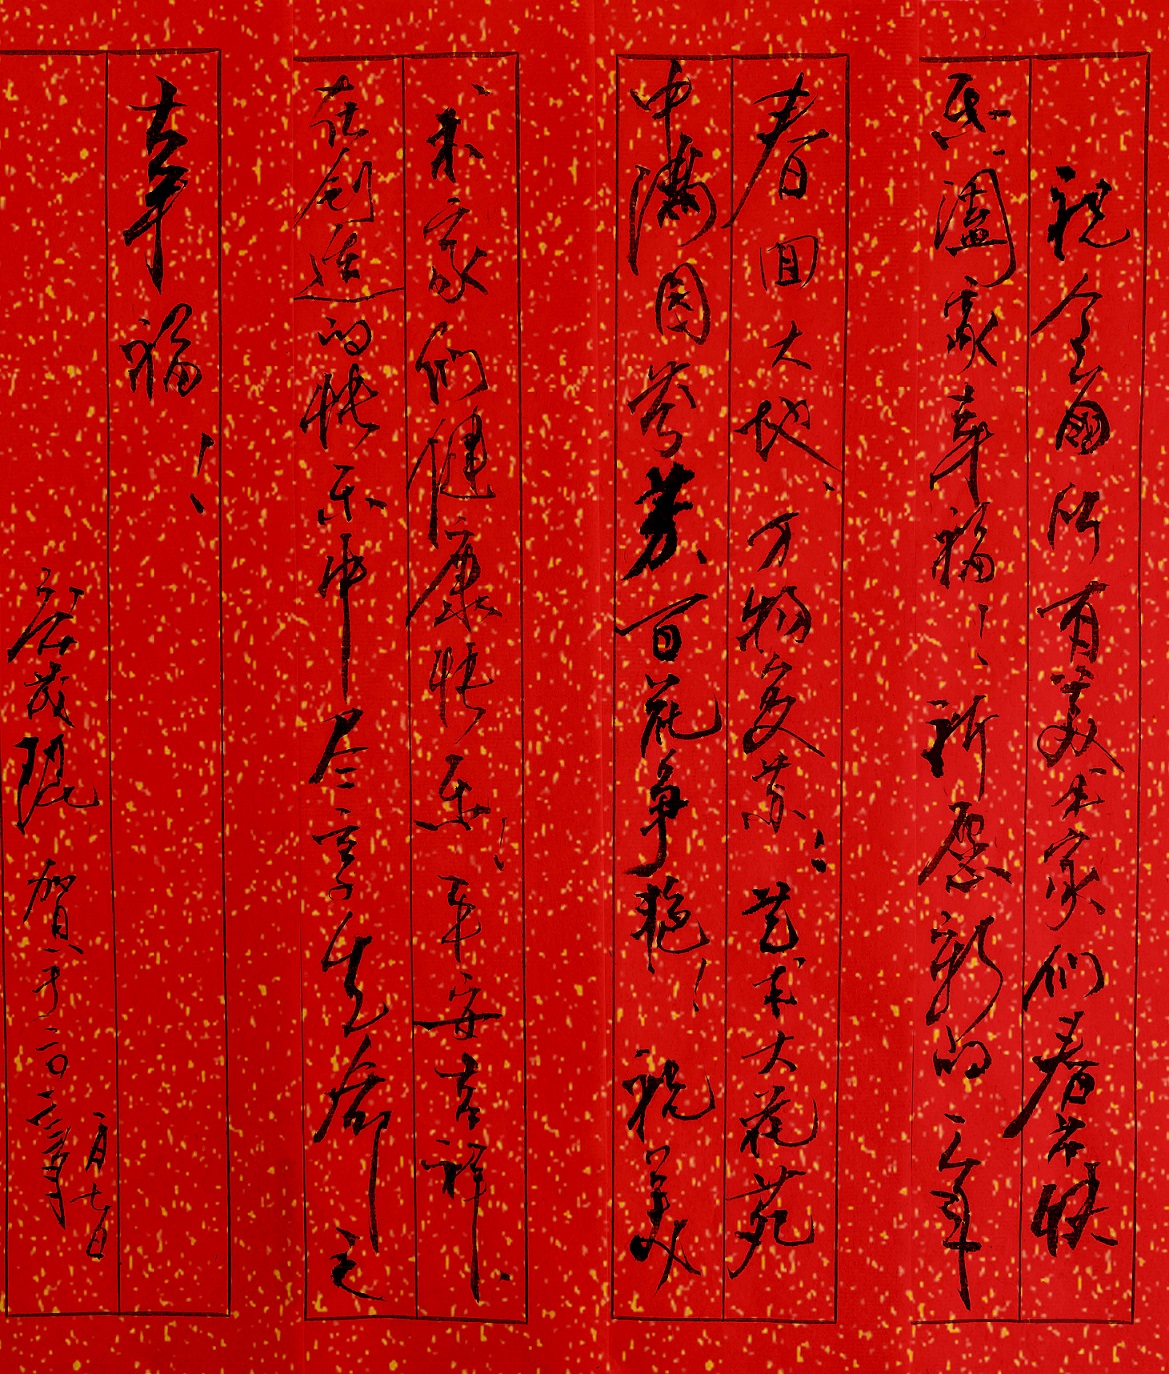 祝全国所有美术家们春节快
乐、阖家幸福！祈愿新的一年
春回大地、万物复苏；艺术大花苑
中满园芬芳百花争艳！祝美
术家们健康快乐，平安吉祥、
在创造的快乐中尽享生命之
幸福！
茂琨 贺于二〇二三年
一月十七日